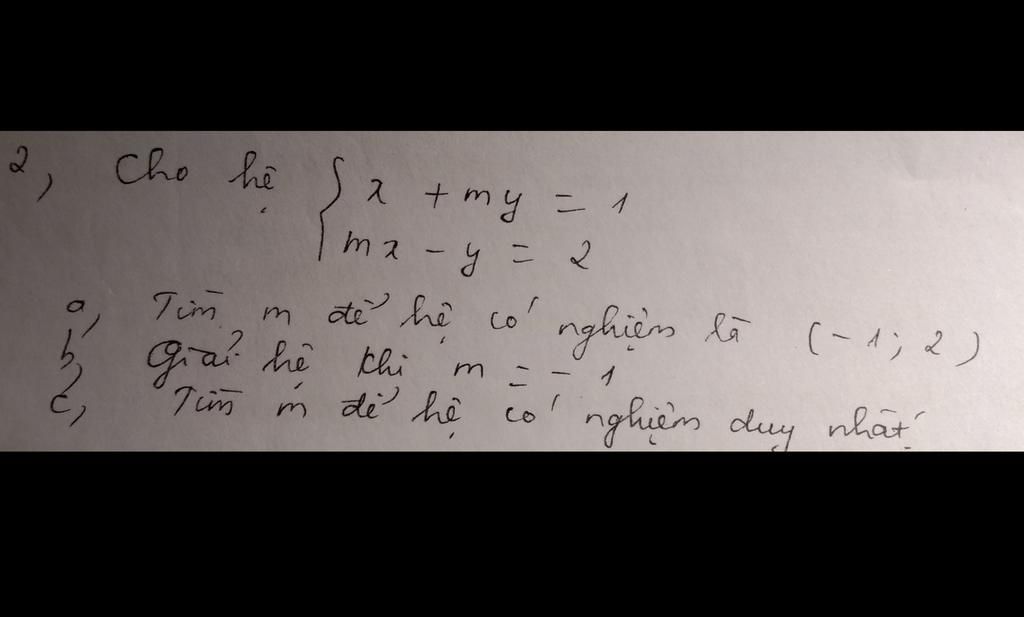 2, Cho hệ { x + my = 1
mx - y = 2
a, Tìm m để hệ có nghiệm là (-1; 2)
b, Giải hệ khi m = -1
c, Tìm m để hệ có nghiệm duy nhất.